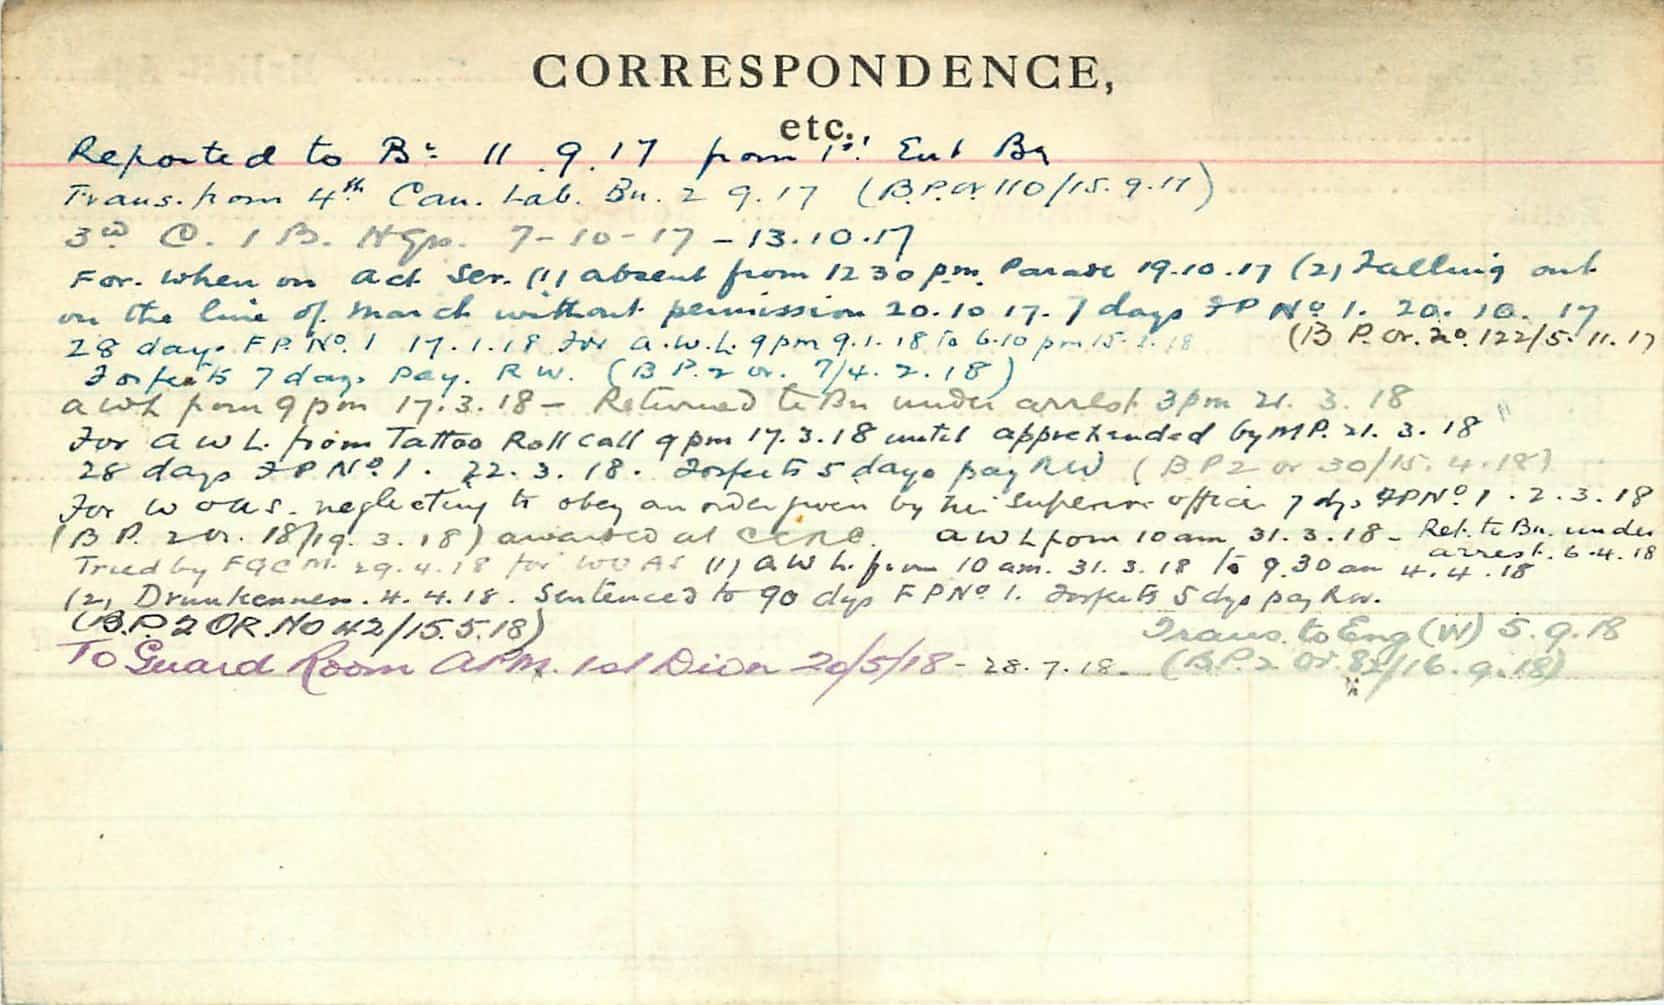 CORRESPONDENCE,
etc.
Reported to Bn 11.9.17 from 1st Ent Bn
Trans. from 4th Can. Lab. Bn. 2 9.17 (B.P.Or 110/15.9.17)
3rd C. I B. Hqrs. 7-10-17 - 13.10.17
For. when on Act Ser. (1) absent from 12 30 pm. Parade 19.10.17 (2) Falling out
on the line of March without permission 20.10 17. 7 days FP No 1. 20. 10. 17
(B P. Or. No. 122/5.11.17
28 days F.P. No. 1 17.1.18 For A.W.L. 9 pm 9.1.18 to 6.10 pm 15.1.18
Forfeits 7 days Pay. R W. (B P. 2 or. 7/4.2.18)
AWL from 9 pm 17.3.18 - Returned to Bn under arrest 3 pm 21.3.18
For A W L. from Tattoo Roll Call 9 pm 17.3.18 until apprehended by M P. 21.3.18
28 days F P No 1. 22.3.18. Forfeits 5 days pay RW (B P 2 or 30/15.4.18)
For W O A S. neglecting to obey an order given by his superior officer 7 dys FP No 1. 2.3.18
(B P. 2 or. 18/19.3.18) awarded at CCRC. A W L from 10 am 31.3.18 - Ret. to Bn. under
arrest. 6.4.18
Tried by FGCM. 29.4.18 for WOAS (1) A W L. from 10 am. 31.3.18 to 9.30 am 4.4.18
(2) Drunkenness. 4.4.18. Sentenced to 90 dys F P No 1. Forfeits 5 dys pay R.W.
(B.P. 2 OR. NO 42/15.5.18)
Trans. to Eng (W) 5.9.18
To Guard Room APM. 1st Divn 20/5/18 - 28.7.18. (B P. 2 Or. 82/16.9.18)